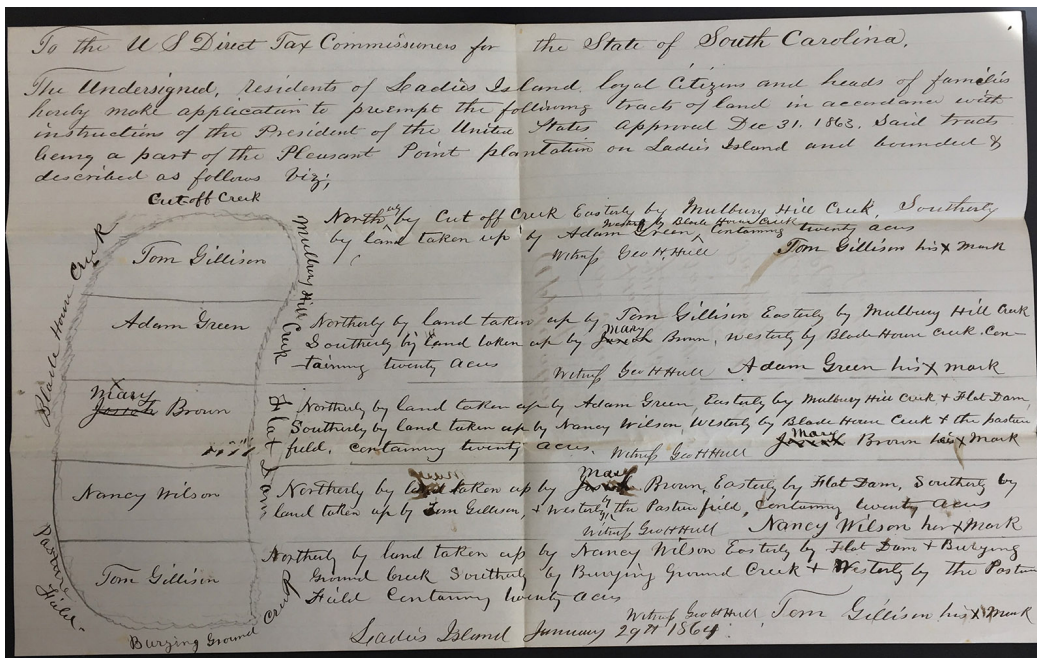 To the U S Direct Tax Commissioners for the State of South Carolina.
The Undersigned, residents of Ladies Island, loyal Citizens and heads of families
hereby make application to preempt the following tracts of land in accordance with
instruction of the President of the United States approved Dec 31. 1863. Said tracts
being a part of the Pleasant Point plantation on Ladies Island and bounded &
described as follows viz;
Cut off Creek
Mulbury Hill Creek
Flat Dam
Burying Ground Creek
Pasture Field
Blade House Creek
Tom Gillison
North erly by Cut off Creek Easterly by Mulbury Hill Creek, Southerly
by land taken up by Adam Green, Westerly by Blade House Creek Containing twenty acres
Witness Geo H. Hull Tom Gillison his x mark
Adam Green
Northerly by land taken up by Tom Gillison Easterly by Mulbury Hill Creek
Southerly by land taken up by Mary Brown, Westerly by Blade House Creek. Con-
taining twenty acres
Witness Geo H Hull Adam Green his x mark
Mary Brown
Northerly by land taken up by Adam Green, Easterly by Mulbury Hill Creek & Flat Dam,
Southerly by land taken up by Nancy Wilson, Westerly by Blade House Creek & the pasture
field, containing twenty acres. Witness Geo H Hull Mary Brown x Mark
Nancy Wilson
Northerly by land taken up by Mary Brown, Easterly by Flat Dam, Southerly by
land taken up by Tom Gillison, & Westerly by the Pasture field, Containing twenty acres
Witness Geo H Hull Nancy Wilson her x Mark
Tom Gillison
Northerly by land taken up by Nancy Wilson Easterly by Flat Dam & Burying
Ground Creek Southerly by Burying Ground Creek & Westerly by the Pasture
Field Containing twenty acres
Witness Geo H Hull, Tom Gillison his x Mark
Ladies Island January 29th 1864.